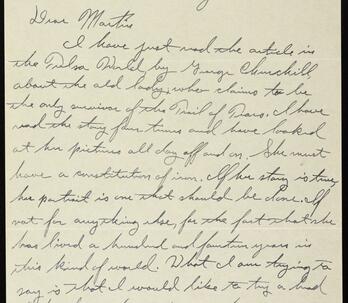 Dear Martin
I have just read the article in
the Tulsa World by George Churchill
about the old lady who claims to be
the only survivor of the Trail of Tears. I have
read the story four times and have looked
at her pictures all day off and on. She must
have a constitution of iron. If her story is true,
her portrait is one that should be done. If
not for anything else, for the fact that she
has lived a hundred and fourteen years in
this kind of world. What I am trying to
say is that I would like to try a